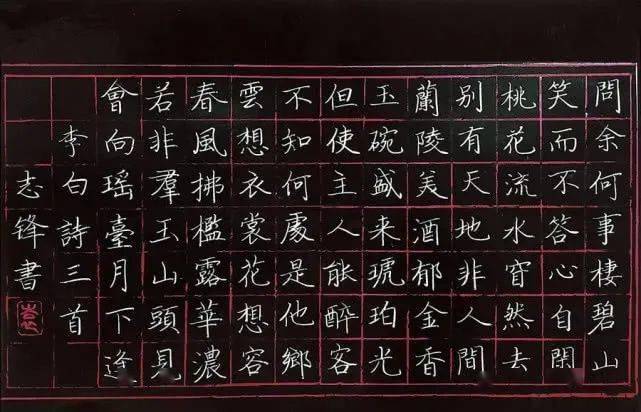 問余何事棲碧山
笑而不答心自閑
桃花流水窅然去
别有天地非人間
蘭陵美酒郁金香
玉碗盛来琥珀光
但使主人能醉客
不知何處是他鄉
雲想衣裳花想容
春風拂檻露華濃
若非羣玉山頭見
會向瑶臺月下逢
李白詩三首
志锋書